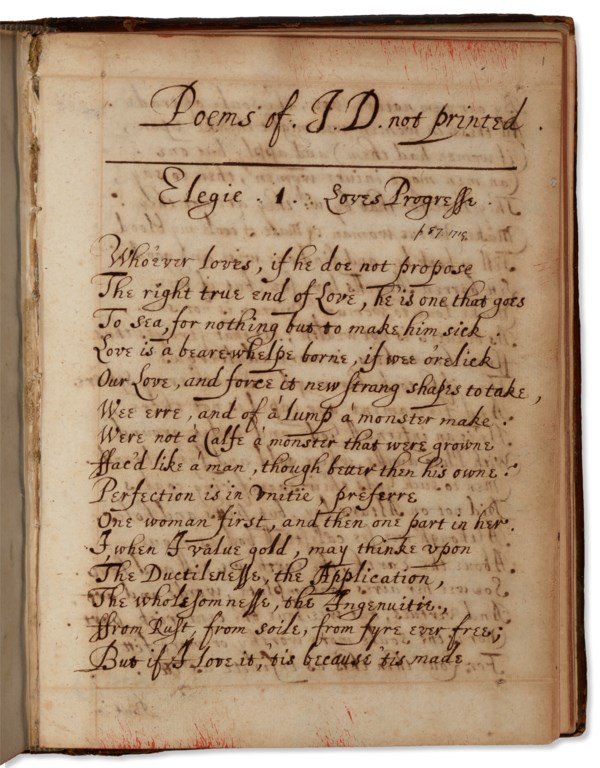 Poems of. J. D. not printed.
Elegie. 1. Loves Progresse.
p 87. 1719
Who'ever loves, if he doe not propose
The right true end of Love, he'is one that goes
To sea, for nothing but to make him sick.
Love is a beare-whelpe borne, if wee o'relick
Our Love, and force it new strang shapes to take,
Wee erre, and of a' lump a' monster make.
Were not a' Calfe a' monster that were growne
ffac'd like a' man, though better then his owne:
Perfection is in Vnitie, preferre
One woman first, and then one part in her.
I, when I value gold, may thinke vpon
The Ductilenesse, the Application,
The wholesomnesse, the Ingenuitie,
ffrom Rust, from soile, from fyre ever free;
But if I love it, 'tis because 'tis made